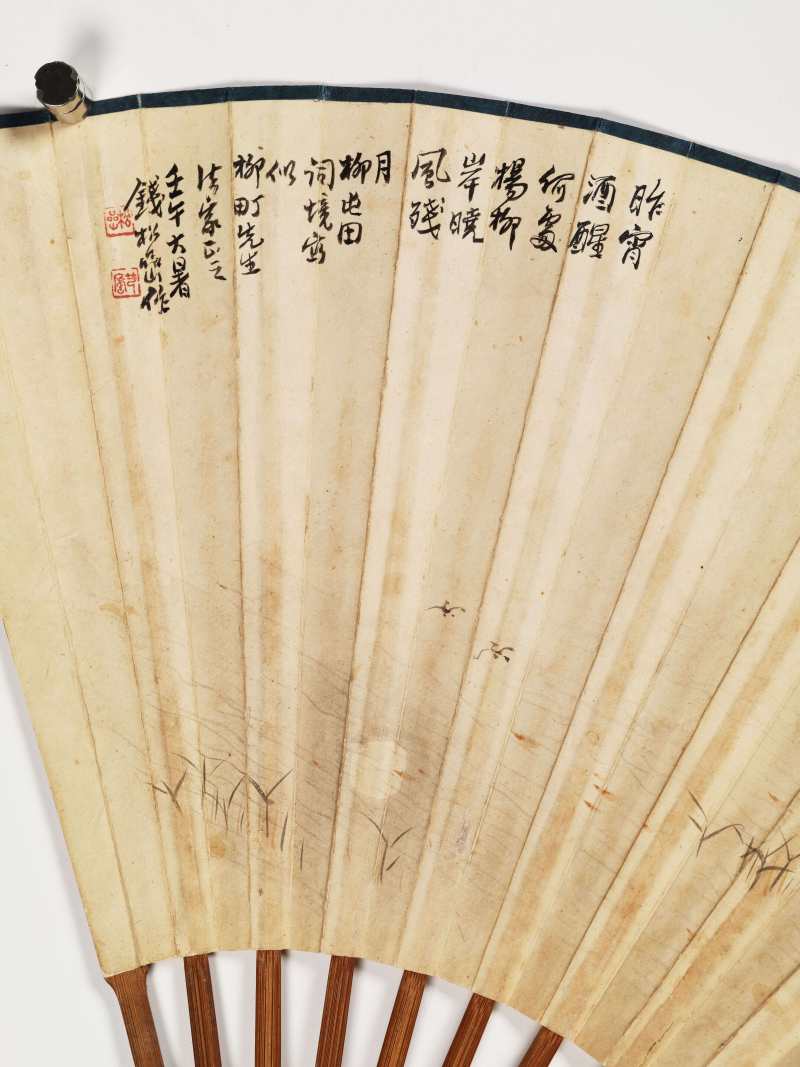 昨宵
酒醒
何處
楊柳
岸曉
風殘
月
柳屯田
詞境寫
似
柳町先生
法家正之
壬午大暑
錢松嵒作